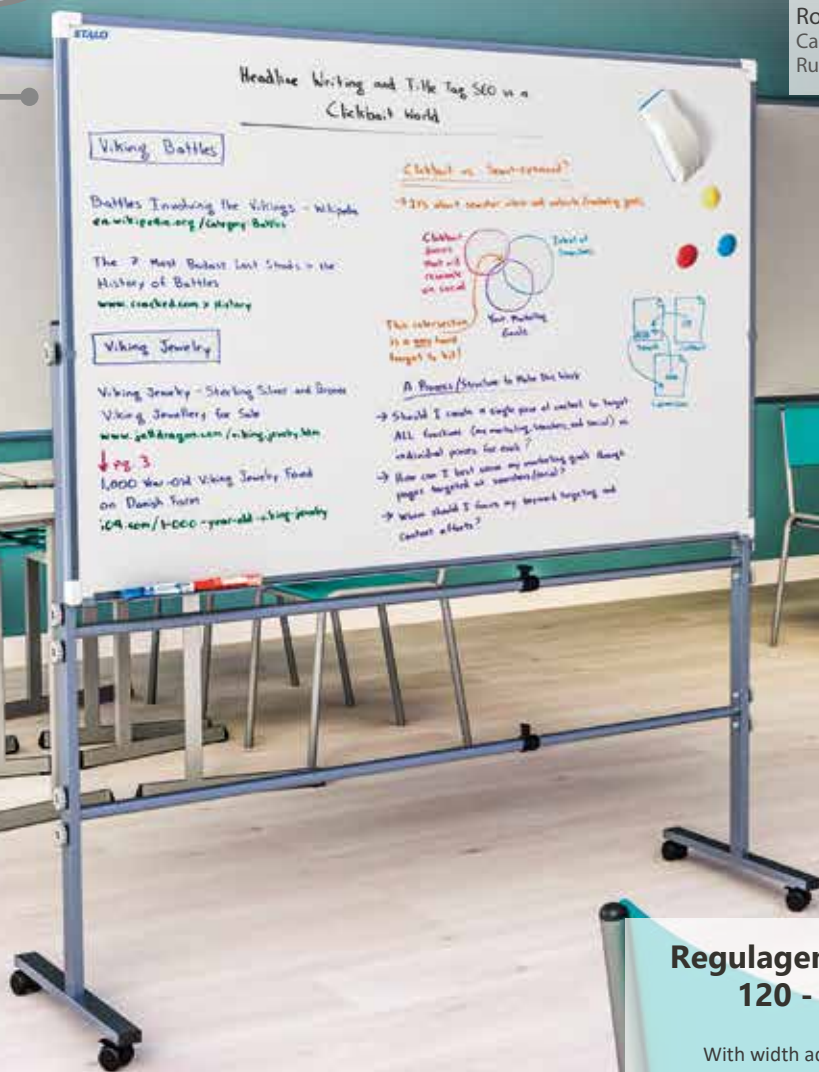 Ro
Ca
Ru
STALO
Headline Writing and Title Tag SEO in a
Clickbait World
Viking Battles
Battles Involving the Vikings - Wikipedia
en.wikipedia.org/Category:Battles
The 7 Most Badass Last Stands in the
History of Battles
www.cracked.com > History
Viking Jewelry
Viking Jewelry - Sterling Silver and Bronze
Viking Jewellery for Sale
www.jelldragon.com/viking_jewelry.htm
↓ pg. 3
1,000 Year-old Viking Jewelry Found
on Danish Farm
io9.com/1-000-year-old-viking-jewelry
Clickbait vs.
Clickbait
pieces
that will
resonate
on social
Intent of
Searchers
Your Marketing
Goals
This intersection
is a very hard
target to hit!
A Process/Structure to Make This Work
→ Should I create a single piece of content to target
ALL functions (my marketing, searchers, and social) or
individual pieces for each?
→ How can I best serve my marketing goals through
pages targeted at searchers/social?
→ When should I focus my keyword targeting and
content efforts?
Regulagen
120 -
With width ad